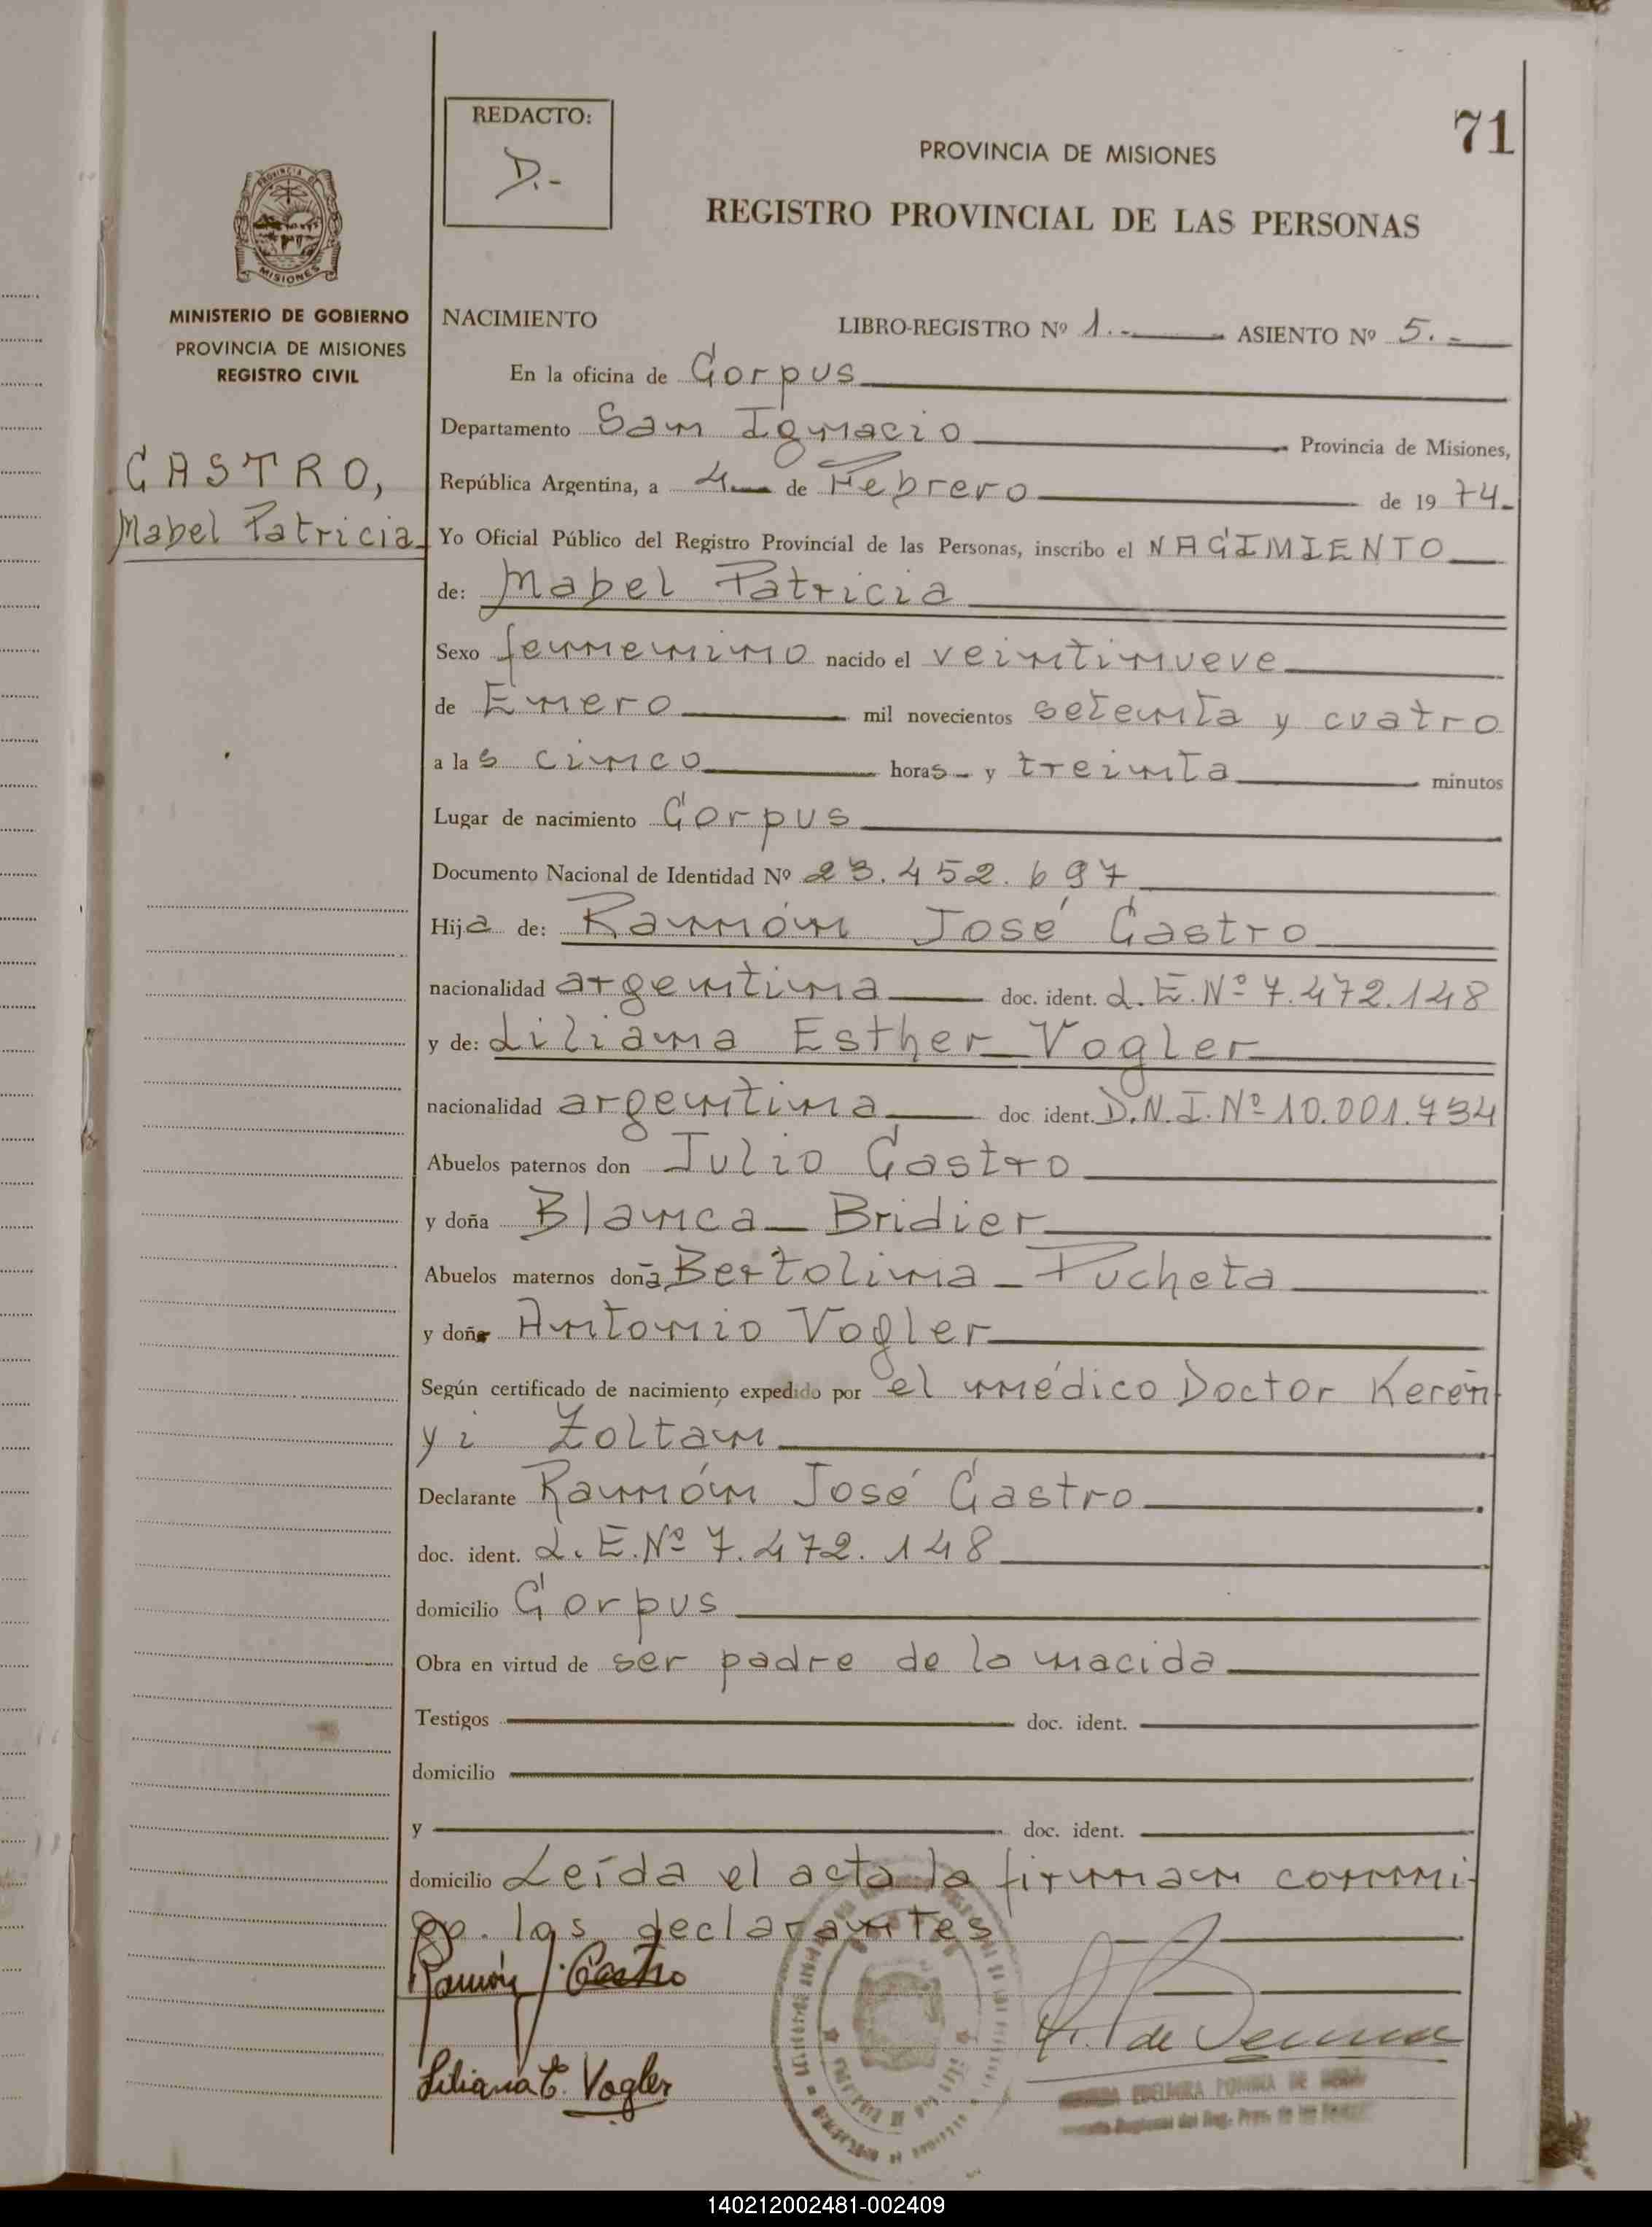 REDACTO:
D.-
71
PROVINCIA DE MISIONES
REGISTRO PROVINCIAL DE LAS PERSONAS
PROVINCIA DE
MISIONES
MINISTERIO DE GOBIERNO
PROVINCIA DE MISIONES
REGISTRO CIVIL
CASTRO,
Mabel Patricia
NACIMIENTO LIBRO-REGISTRO Nº 1.- ASIENTO Nº 5.-
En la oficina de Corpus
Departamento San Ignacio Provincia de Misiones,
República Argentina, a 4 de Febrero de 1974.
Yo Oficial Público del Registro Provincial de las Personas, inscribo el NACIMIENTO
de: Mabel Patricia
Sexo femenino nacido el veintinueve
de Enero mil novecientos setenta y cuatro
a las cinco horas y treinta minutos
Lugar de nacimiento Corpus
Documento Nacional de Identidad Nº 23.452.697
Hija de: Ramón José Castro
nacionalidad argentina doc. ident. L.E.Nº 7.472.148
y de: Liliana Esther Vogler
nacionalidad argentina doc ident. D.N.I.Nº 10.001.734
Abuelos paternos don Julio Castro
y doña Blanca Bridier
Abuelos maternos doña Bertolina Pucheta
y doñ Antonio Vogler
Según certificado de nacimiento expedido por el médico Doctor Keren
yi Zoltan
Declarante Ramón José Castro
doc. ident. L.E.Nº 7.472.148
domicilio Corpus
Obra en virtud de ser padre de la nacida
Testigos doc. ident.
domicilio
y doc. ident.
domicilio Leída el acta la firman conmi
go los declarantes
Ramón J. Castro
Liliana E. Vogler
140212002481-002409